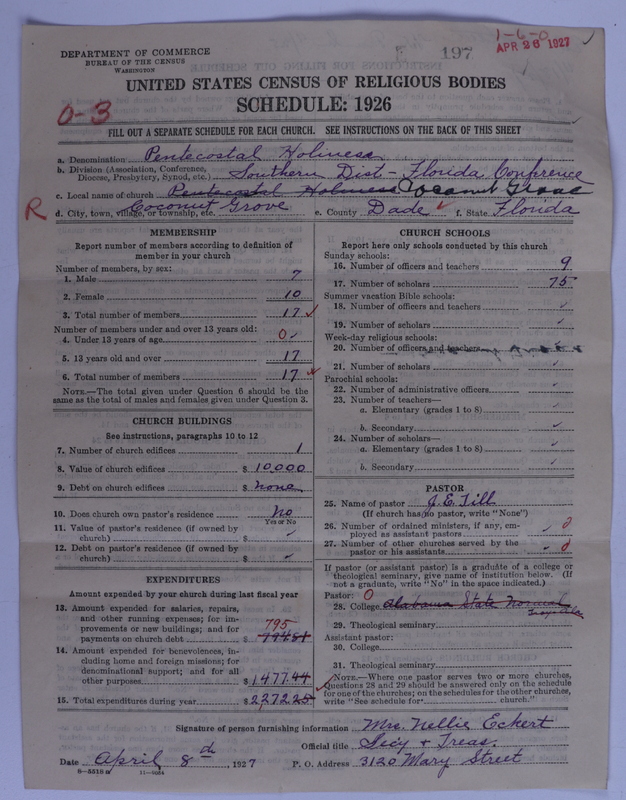 1-6-0
197
APR 26 1927
DEPARTMENT OF COMMERCE
BUREAU OF THE CENSUS
WASHINGTON
UNITED STATES CENSUS OF RELIGIOUS BODIES
SCHEDULE: 1926
0-3
FILL OUT A SEPARATE SCHEDULE FOR EACH CHURCH. SEE INSTRUCTIONS ON THE BACK OF THIS SHEET
a. Denomination Pentecostal Holiness
b. Division (Association, Conference, Diocese, Presbytery, Synod, etc.) Southern Dist - Florida Conference
c. Local name of church Pentecostal Holiness Coconut Grove
R
d. City, town, village, or township, etc. Coconut Grove e. County Dade f. State Florida
MEMBERSHIP
Report number of members according to definition of
member in your church
Number of members, by sex:
1. Male 7
2. Female 10
3. Total number of members 17
Number of members under and over 13 years old:
4. Under 13 years of age 0
5. 13 years old and over 17
6. Total number of members 17
NOTE.—The total given under Question 6 should be the
same as the total of males and females given under Question 3.
CHURCH BUILDINGS
See instructions, paragraphs 10 to 12
7. Number of church edifices 1
8. Value of church edifices $ 10,000
9. Debt on church edifices $ none
10. Does church own pastor's residence No
Yes or No
11. Value of pastor's residence (if owned by
church) $
12. Debt on pastor's residence (if owned by
church) $
EXPENDITURES
Amount expended by your church during last fiscal year
13. Amount expended for salaries, repairs,
and other running expenses; for im-
provements or new buildings; and for 795
payments on church debt $ 794.81
14. Amount expended for benevolences, in-
cluding home and foreign missions; for
denominational support; and for all
other purposes $ 1477.44
15. Total expenditures during year $ 2272.25
CHURCH SCHOOLS
Report here only schools conducted by this church
Sunday schools:
16. Number of officers and teachers 9
17. Number of scholars 75
Summer vacation Bible schools:
18. Number of officers and teachers
19. Number of scholars
Week-day religious schools:
20. Number of officers and teachers
21. Number of scholars
Parochial schools:
22. Number of administrative officers
23. Number of teachers—
a. Elementary (grades 1 to 8)
b. Secondary
24. Number of scholars—
a. Elementary (grades 1 to 8)
b. Secondary
PASTOR
25. Name of pastor J. E. Till
(If church has no pastor, write "None")
26. Number of ordained ministers, if any, em-
ployed as assistant pastors 0
27. Number of other churches served by the
pastor or his assistants 0
If pastor (or assistant pastor) is a graduate of a college or
theological seminary, give name of institution below. (If
not a graduate, write "No" in the space indicated.)
Pastor: 0
28. College Alabama State Normal
29. Theological seminary
Assistant pastor:
30. College
31. Theological seminary
NOTE.—Where one pastor serves two or more churches,
Questions 28 and 29 should be answered only on the schedule
for one of the churches; on the schedules for the other churches,
write "See schedule for church."
Signature of person furnishing information Mrs. Nellie Eckert
Official title Secy + Treas.
Date April 8th, 1927 P. O. Address 3120 Mary Street
8-5518a 11-9584